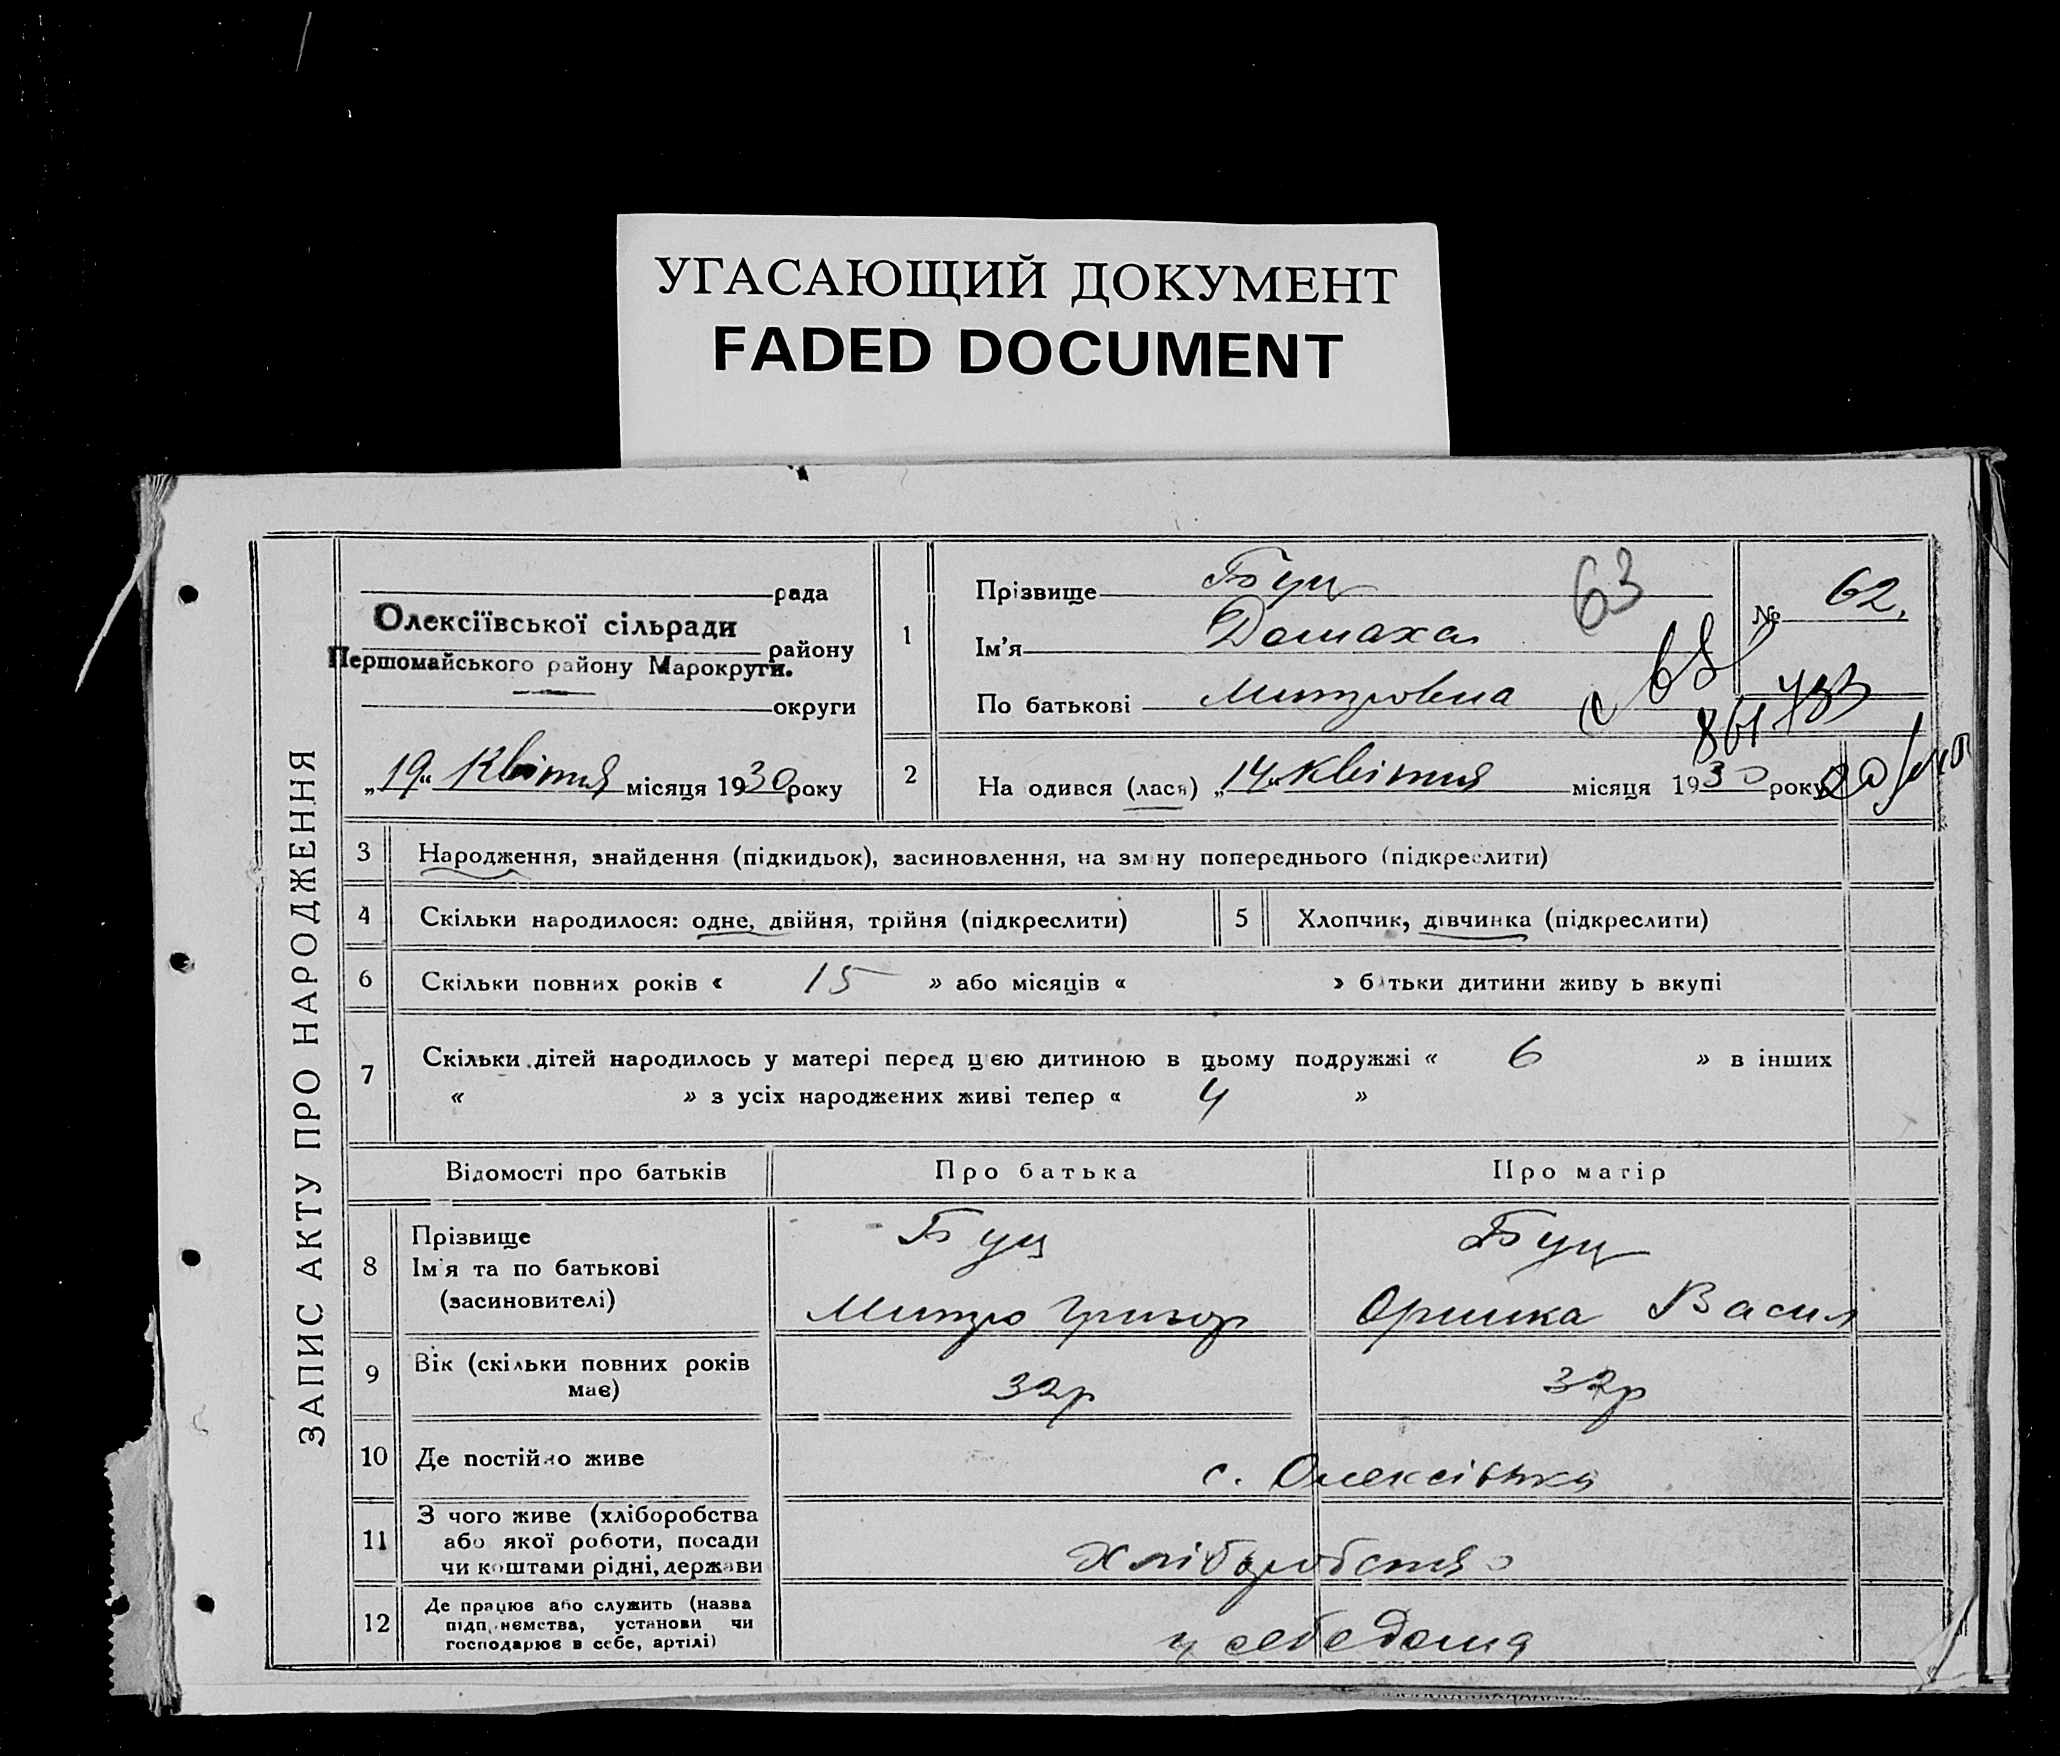 УГАСАЮЩИЙ ДОКУМЕНТ
FADED DOCUMENT
ЗАПИС АКТУ ПРО НАРОДЖЕННЯ
рада
Олексіївської сільради
району
Першомайського району Марокруги.
округи
„19“ Квітня місяця 1930 року
1
Прізвище Буц
63
Ім'я Домаха
По батькові Митровна
№ 62.
с 68
861 733
2
На одився (лася) „14“ Квітня місяця 1930 року
3 Народження, знайдення (підкидьок), засиновлення, на зміну попереднього (підкреслити)
4 Скільки народилося: одне, двійня, трійня (підкреслити)
5 Хлопчик, дівчинка (підкреслити)
6 Скільки повних років « 15 » або місяців « » батьки дитини живу ь вкупі
7 Скільки дітей народилось у матері перед цією дитиною в цьому подружжі « 6 » в інших
« » з усіх народжених живі тепер « 4 »
Відомості про батьків Про батька Про матір
8 Прізвище Буц Буц
Ім'я та по батькові
(засиновителі) Митро Григор Оришка Васил
9 Вік (скільки повних років
має) 32р 32р
10 Де постійно живе с. Олексівка
11 З чого живе (хліборобства
або якої роботи, посади
чи коштами рідні, держави Хліборобства
12 Де працює або служить (назва
підприємства, установи чи
господарює в себе, артілі) у себе дома